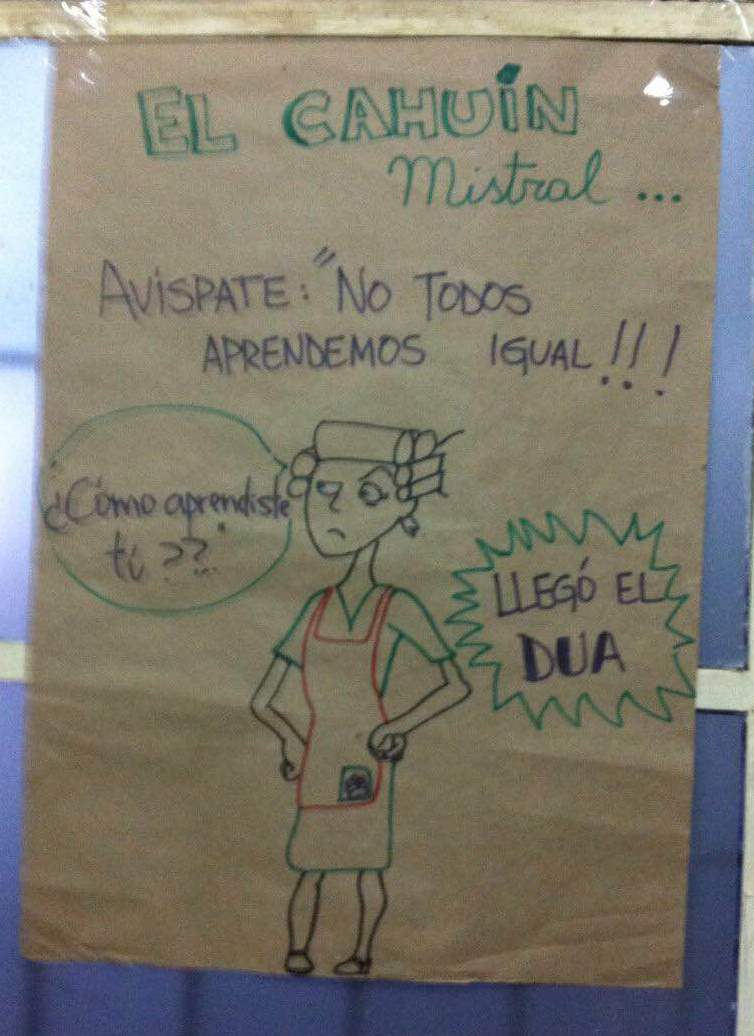 EL CAHUíN
Mistral ...
AViSPATE: "No TODOS
APRENDEMOS IGUAL!!!
¿Cómo aprendiste
tí ??
LLEGÓ EL
DUA